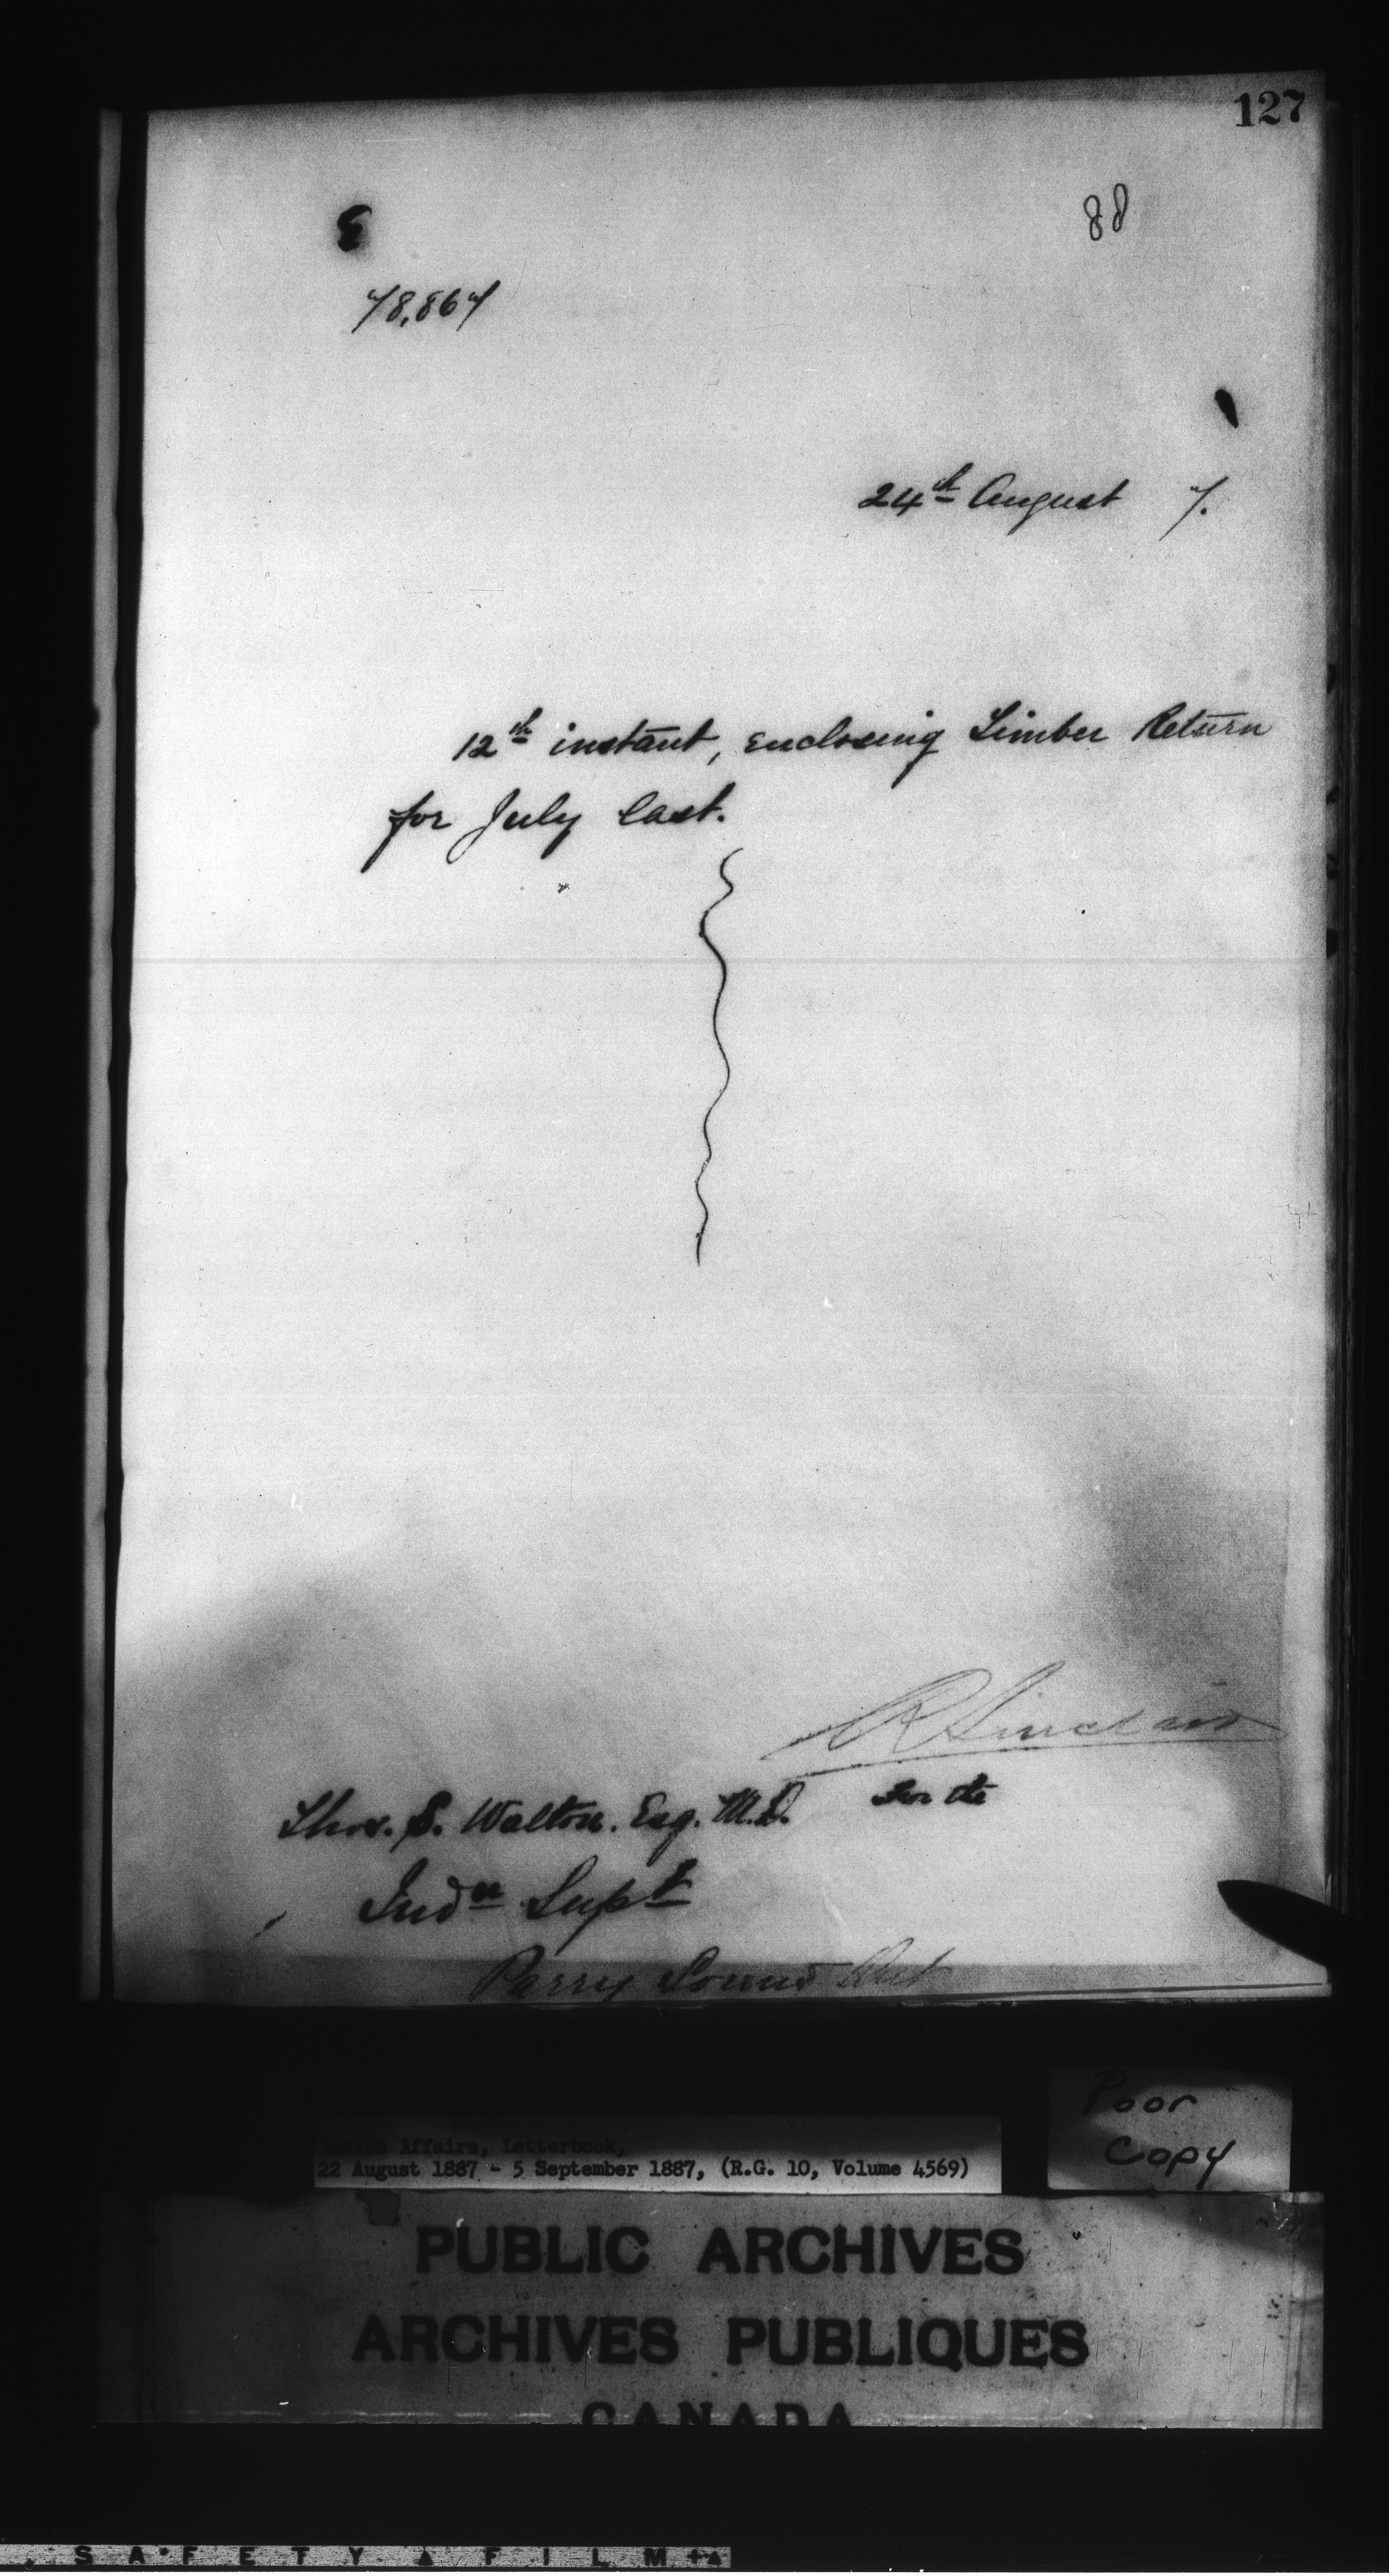 127
88
78,867
24th August 7.
12th instant, enclosing Timber Return
for July last.
R Sinclair
Thos. S. Walton. Esq. M.D. For the
Indn Supt
Parry Sound Ont
Poor
Copy
Indian Affairs, Letterbook,
22 August 1887 - 5 September 1887, (R.G. 10, Volume 4569)
PUBLIC ARCHIVES
ARCHIVES PUBLIQUES
CANADA
SAFETY FILM